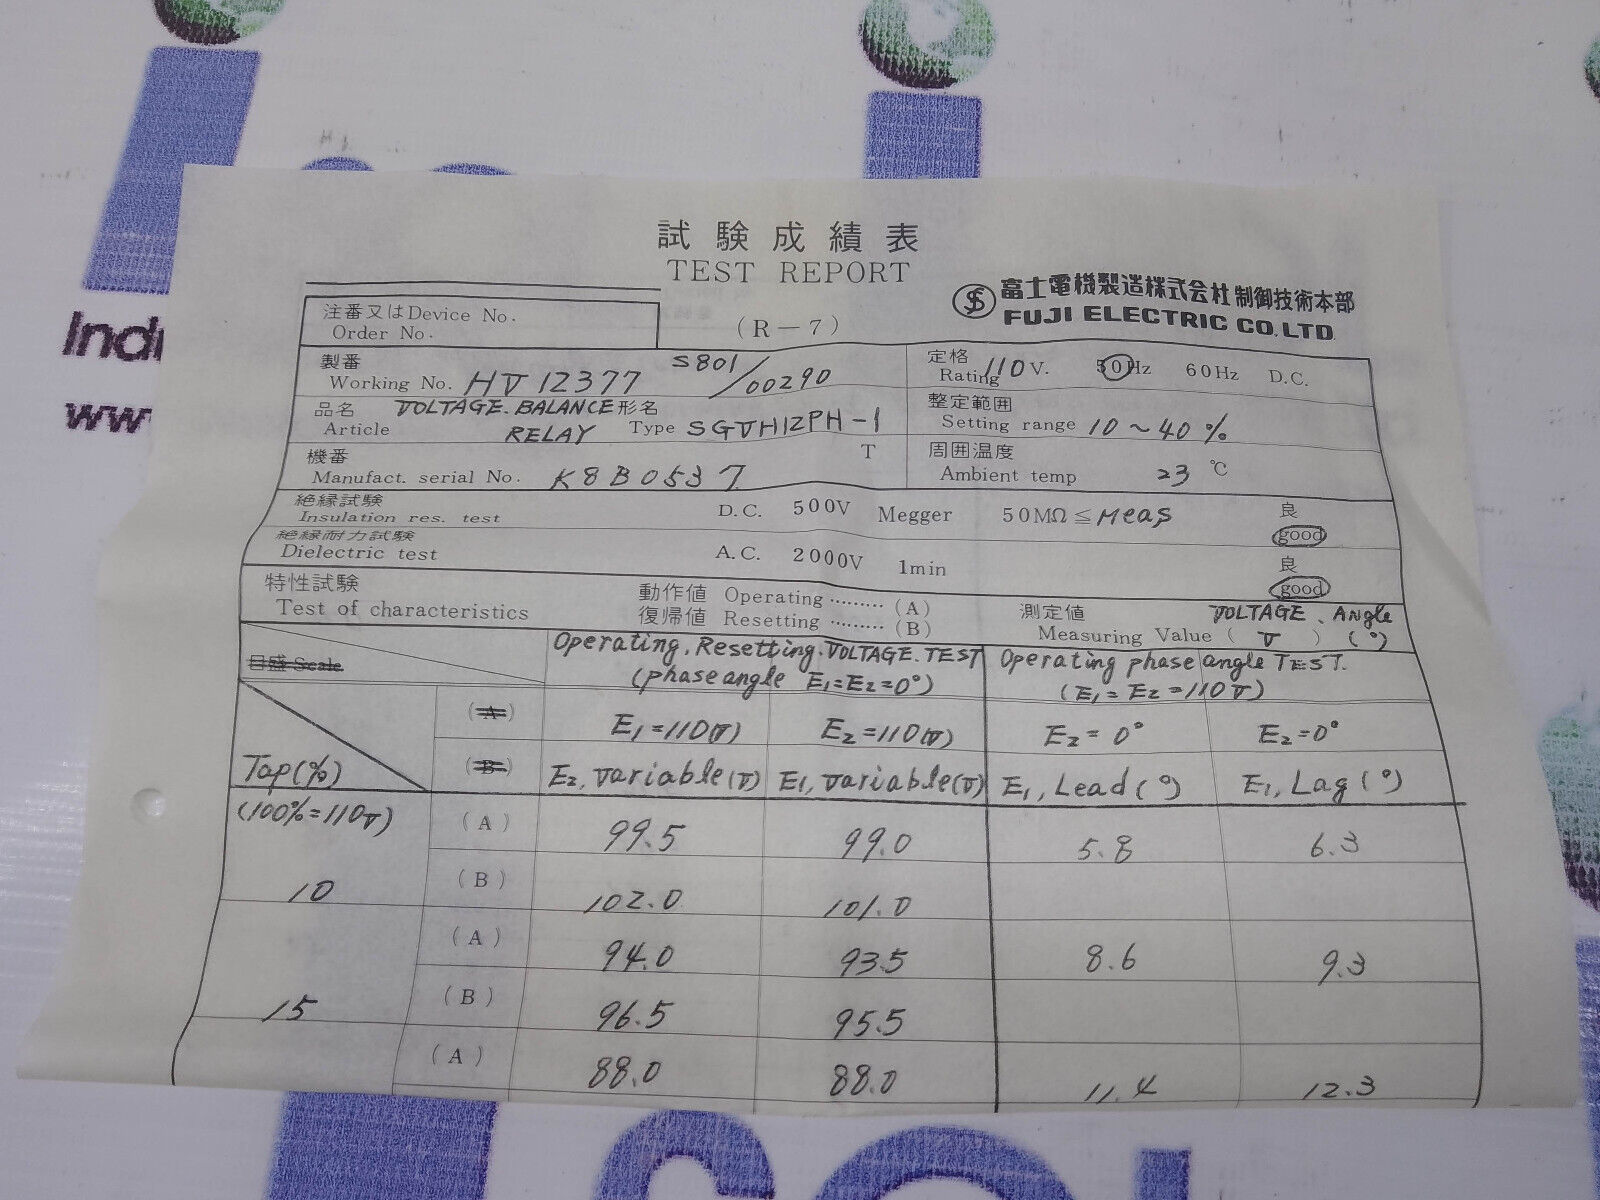 試験成績表
TEST REPORT
(R-7)
富士電機製造株式会社制御技術本部
FUJI ELECTRIC CO. LTD.
注番又は Device No.
Order No.
製番
Working No. HV12377 S801/00290
定格
Rating 110 V. 50Hz 60Hz D.C.
品名 VOLTAGE. BALANCE 形名
Article RELAY Type SGVH12PH-1
整定範囲
Setting range 10～40 %
機番 T
Manufact. serial No. K8B0537
周囲温度
Ambient temp 23 ℃
絶縁試験
Insulation res. test D.C. 500V Megger 50MΩ≦Meas
良
good
絶縁耐力試験
Dielectric test A.C. 2000V 1min
良
good
特性試験
Test of characteristics
動作値 Operating ……… (A)
復帰値 Resetting ……… (B)
測定値 VOLTAGE. Angle
Measuring Value ( V ) (°)
目盛 Scale
Operating. Resetting. VOLTAGE. TEST
(phase angle E1=E2=0°)
Operating phase angle TEST.
(E1=E2=110V)
(A) E1=110(V) E2=110(V) E2=0° E2=0°
Tap(%) (B) E2, Variable(V) E1, Variable(V) E1, Lead(°) E1, Lag(°)
(100%=110V) (A) 99.5 99.0 5.8 6.3
10 (B) 102.0 101.0
(A) 94.0 93.5 8.6 9.3
15 (B) 96.5 95.5
(A) 88.0 88.0 11.4 12.3
Indu
ww